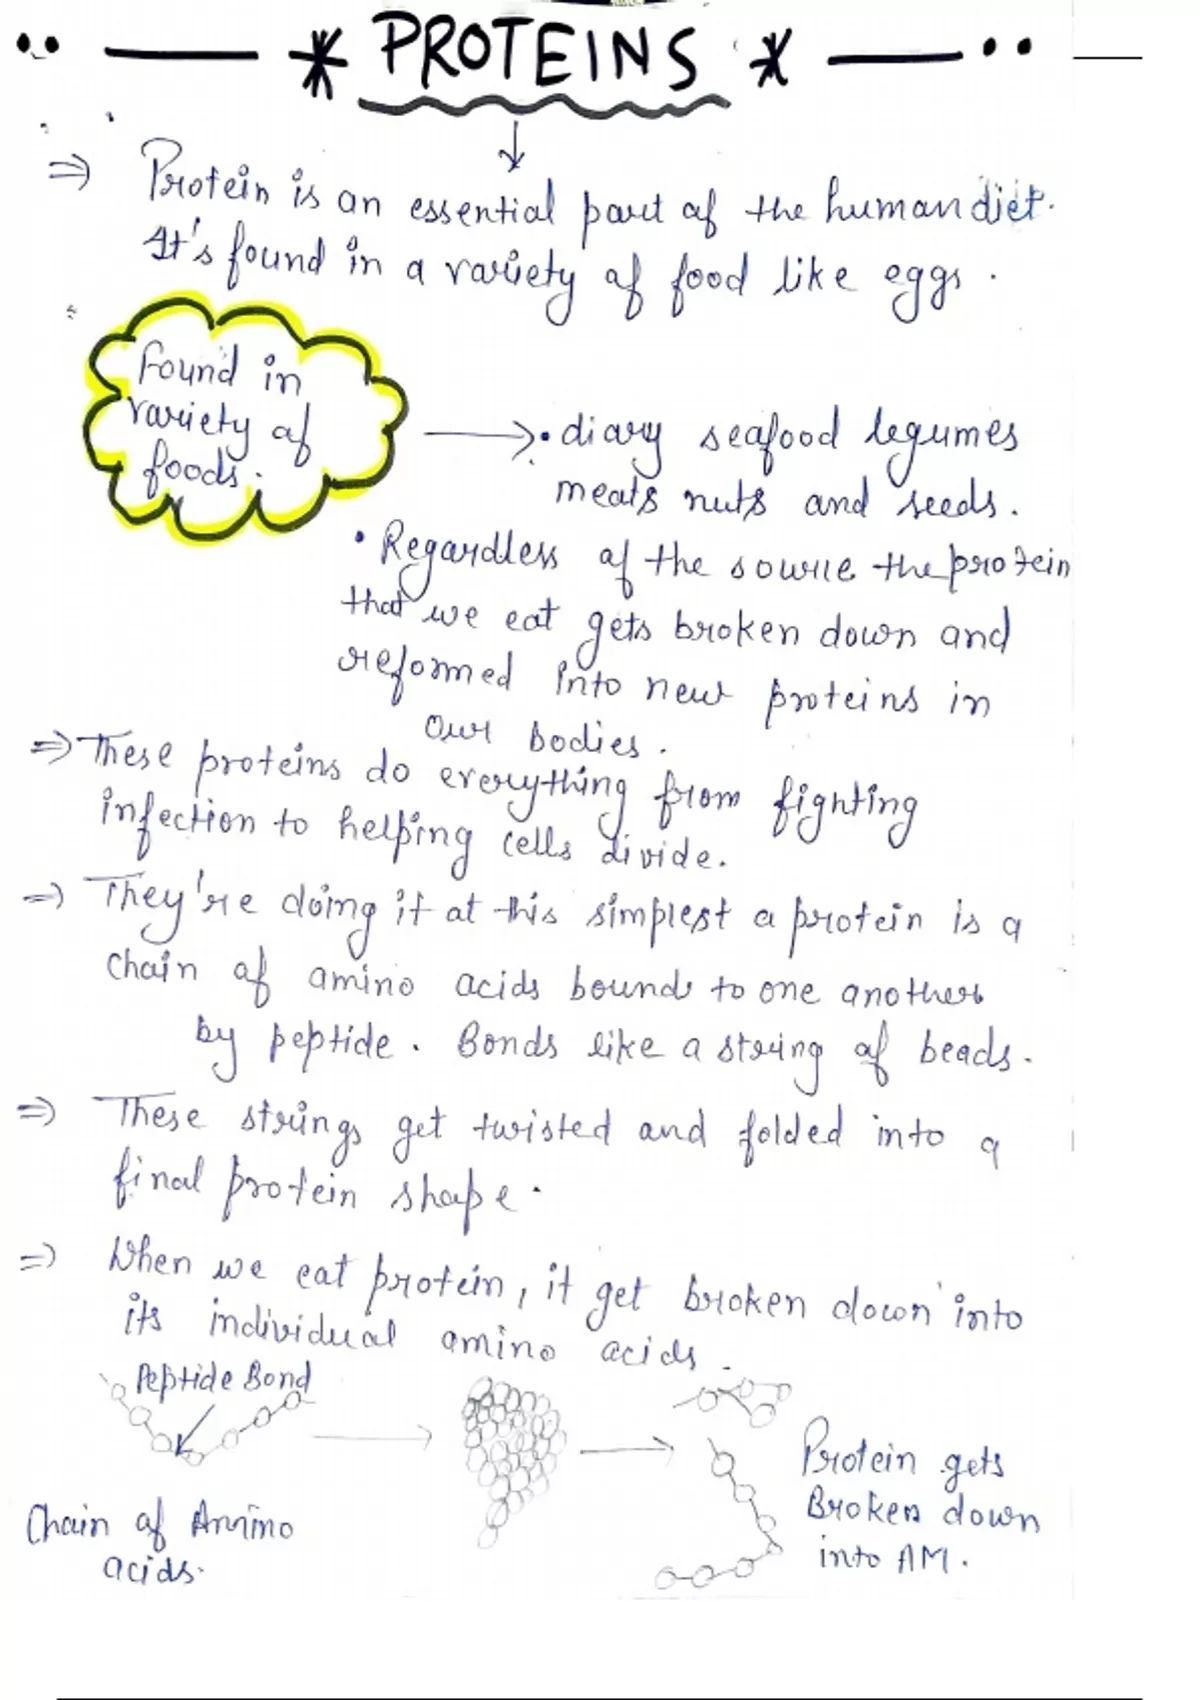 PROTEINS
⇒ Protein is an essential part of the human diet.
It's found in a variety of food like eggs.
Found in
variety of
foods.
• diary seafood legumes
meats nuts and seeds.
• Regardless of the source the protein
that we eat gets broken down and
reformed into new proteins in
our bodies.
⇒ These proteins do everything from fighting
infection to helping cells divide.
⇒ They're doing it at this simplest a protein is a
chain of amino acids bounds to one another
by peptide. Bonds like a string of beads.
⇒ These strings get twisted and folded into a
final protein shape.
⇒ When we eat protein, it get broken down into
its individual amino acids.
Peptide Bond
Chain of Amino
acids.
Protein gets
Broken down
into AM.